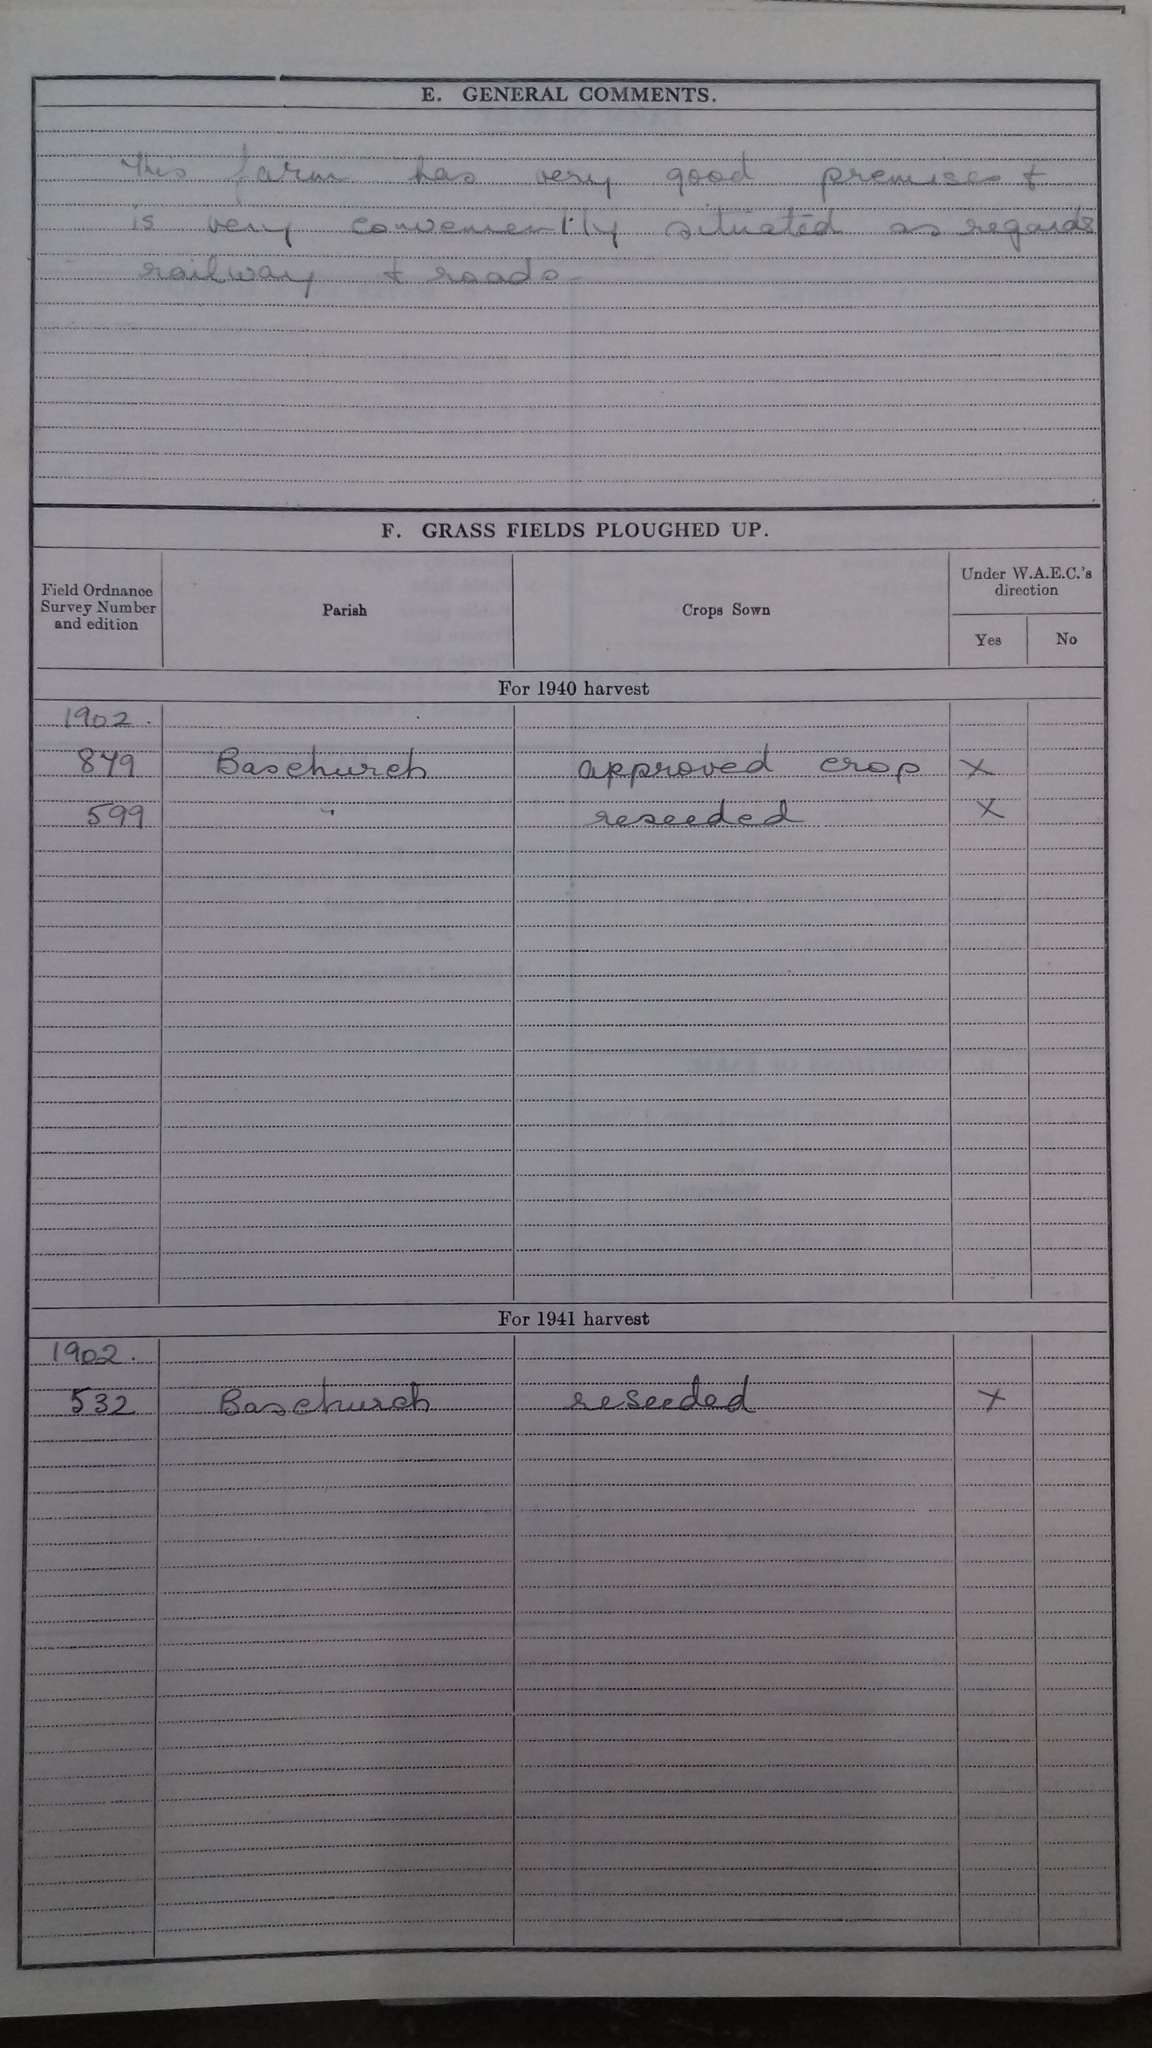 E. GENERAL COMMENTS.
This farm has very good premises &
is very conveniently situated as regards
railway & roads-
F. GRASS FIELDS PLOUGHED UP.
Field Ordnance Survey Number and edition
Parish
Crops Sown
Under W.A.E.C.'s direction
Yes
No
For 1940 harvest
1902.
879 Baschurch approved crop X
599 " reseeded X
For 1941 harvest
1902.
532 Baschurch reseeded X